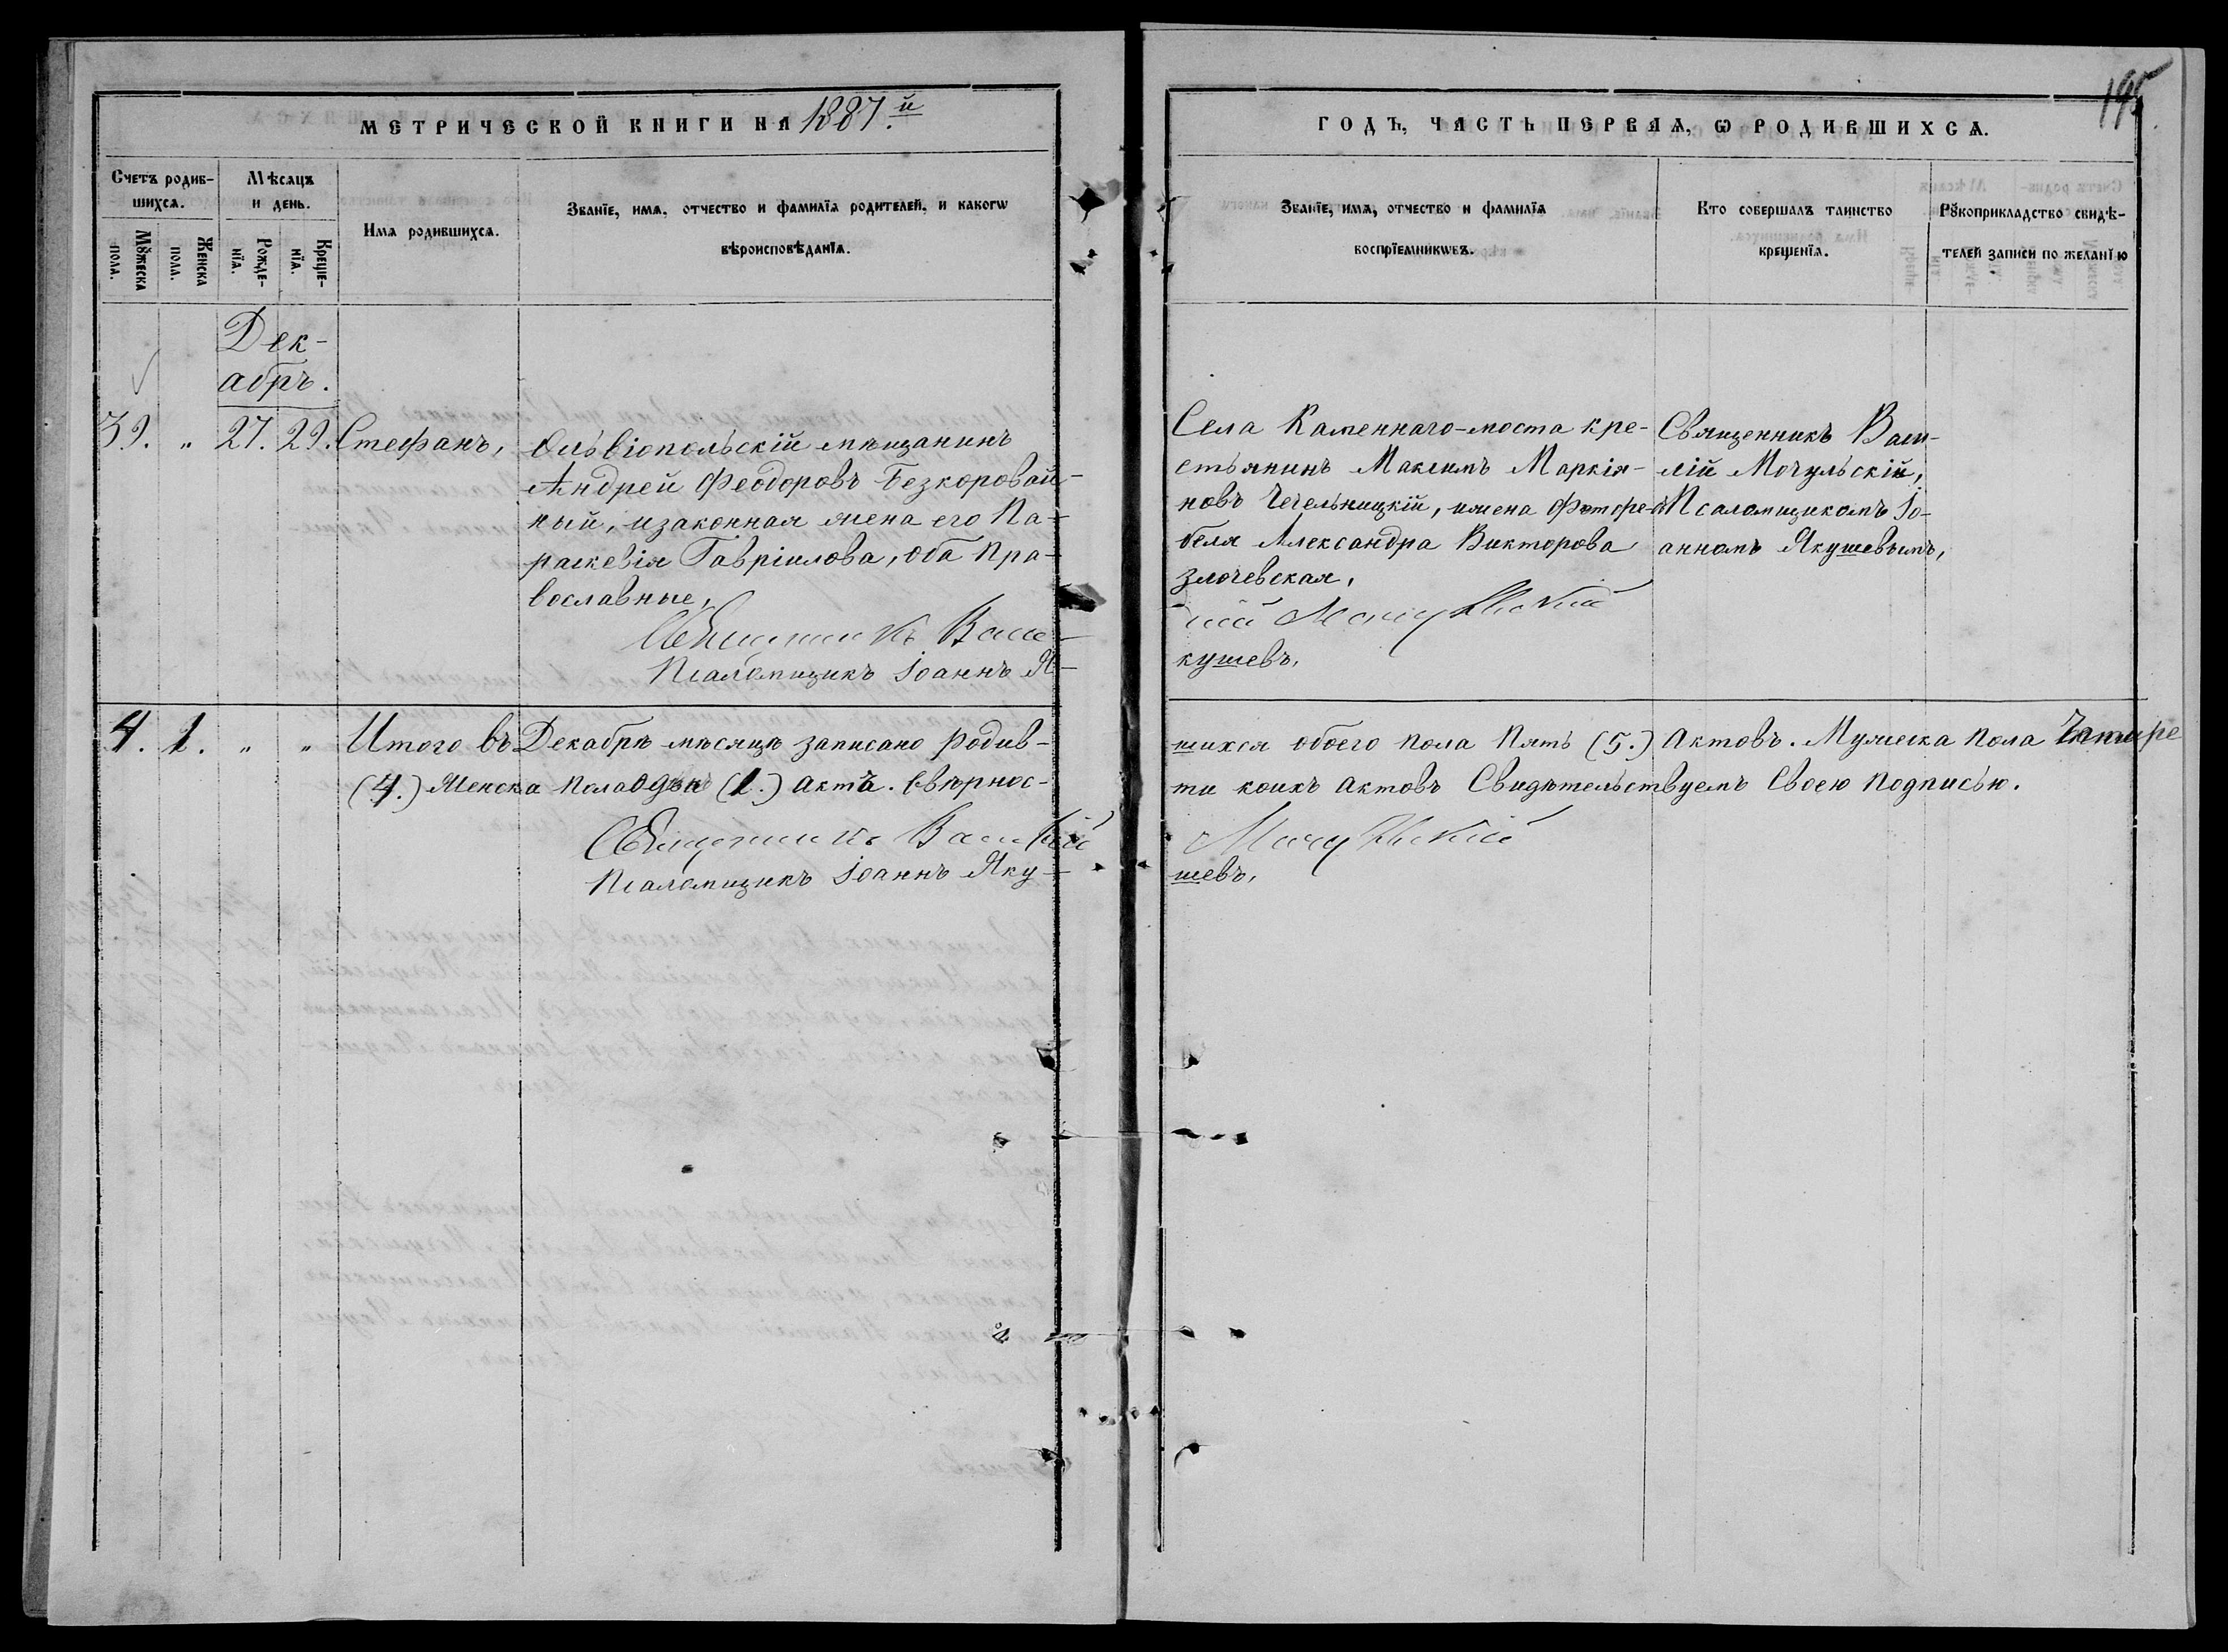 195
МЕТРИЧЕСКОЙ КНИГИ НА 1887.й
ГОДЪ, ЧАСТЬ ПЕРВАЯ, Ѡ РОДИВШИХСѦ.
Счетъ родив-
шихсѧ.
Мѣсяцъ
и день.
Имѧ родившихсѧ.
Званїе, имѧ, отчество и фамилїѧ родителей, и какогѡ
вѣроисповѣданїѧ.
Мꙋжеска
пола.
Женска
пола.
Рожде-
нїѧ.
Креще-
нїѧ.
Званїе, имѧ, отчество и фамилїѧ
воспрїемникѡвъ.
Кто совершалъ таинство
крещенїѧ.
Рꙋкоприкладство свидѣ-
телей записи по желанїю
Дек-
абрь.
39. „ 27. 29. Стефанъ,
Ольвіопольскій мѣщанинъ
Андрей Феодоровъ Безкоровай-
ный, и законная жена его Па-
раскевія Гавріилова, оба пра-
вославные,
Священникъ Васи-
Псаломщикъ Іоаннъ Я-
Села Каменнаго-моста кре-
стьянинъ Максимъ Маркія-
новъ Чечельницкій, и жена
беля Александра Викторова
Злочевская,
лій Мочульскій
кушевъ.
Священникъ Васи-
лій Мочульскій,
съ Псаломщикомъ Іо-
анномъ Якушевымъ,
4. 1. „ „ Итого въ Декабрѣ мѣсяцѣ записано родив-
шихся обоего пола пять (5.) актовъ. Мужеска пола Четыре
(4.) Женска пола одинъ (1.) актъ. Вѣрнос-
ти коихъ актовъ Свидѣтельствуемъ своею подписью.
Священникъ Василій
Мочульскій
Псаломщикъ Іоаннъ Яку-
шевъ,